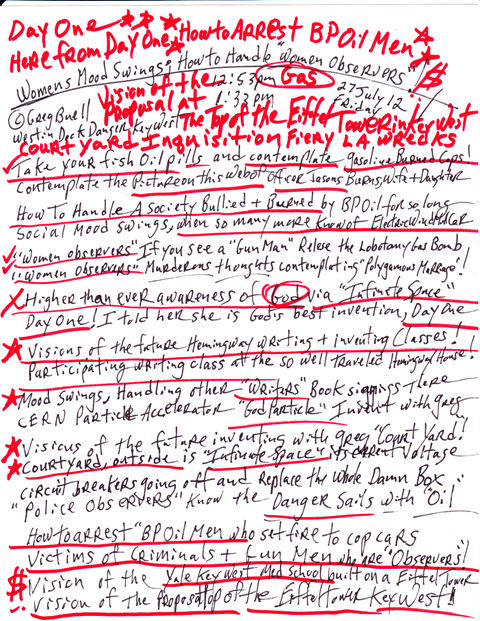 Day One
How to ARREST BP Oil Men
Here from Day One
Womens Mood Swings; How to Handle "Women Observers"!
Vision of the 12:53pm Gas 27 July 12
©Greg Buell Proposal at 1:33pm Friday
Westin Dock Danger Key West The Top of the Eiffel Tower in Key West
Court yard Inquisition Fiery LA Wrecks
Take your fish Oil pills and contemplate gasoline Burned Cops!
Contemplate the Picture on this Web of officer Jasons Burns, Wife + Daughter
How To Handle A Society Bullied + Burned by BP Oil for so long
Social Mood swings, when so many more know of ElectricWindMillCar
"Women observers" If you see a "Gun Man" Relese the Lobotomy Gas Bomb
"Women Observers" Murderous thoughts contemplating "Polygamous Marrage"!
Higher than ever awareness of God via "Infinite Space"
Day One! I told her she is God's best invention, Day One
Visions of the future Hemingway writing + inventing Classes!
Participating writing class at the so well Traveled Hemingway House!
Mood Swings, Handling other "Writers" Book signings There
CERN Particle Accelerator "God Particle" Invent with Greg
Visions of the future inventing with Greg "Court Yard!
Courtyard, outside is "Infinite Space" its current Voltage
circuit breakers going off and Replace the whole Damn Box
"Police Observers" Know the Danger Sails with "Oil"
How to arrest "BP Oil Men who set fire to cop cars
Victims of Criminals + Gun Men who are "Observers"!
$ Vision of the Yale Key West Med School built on a Eiffel Tower
Vision of the Proposal top of the Eiffel Tower Key West!!